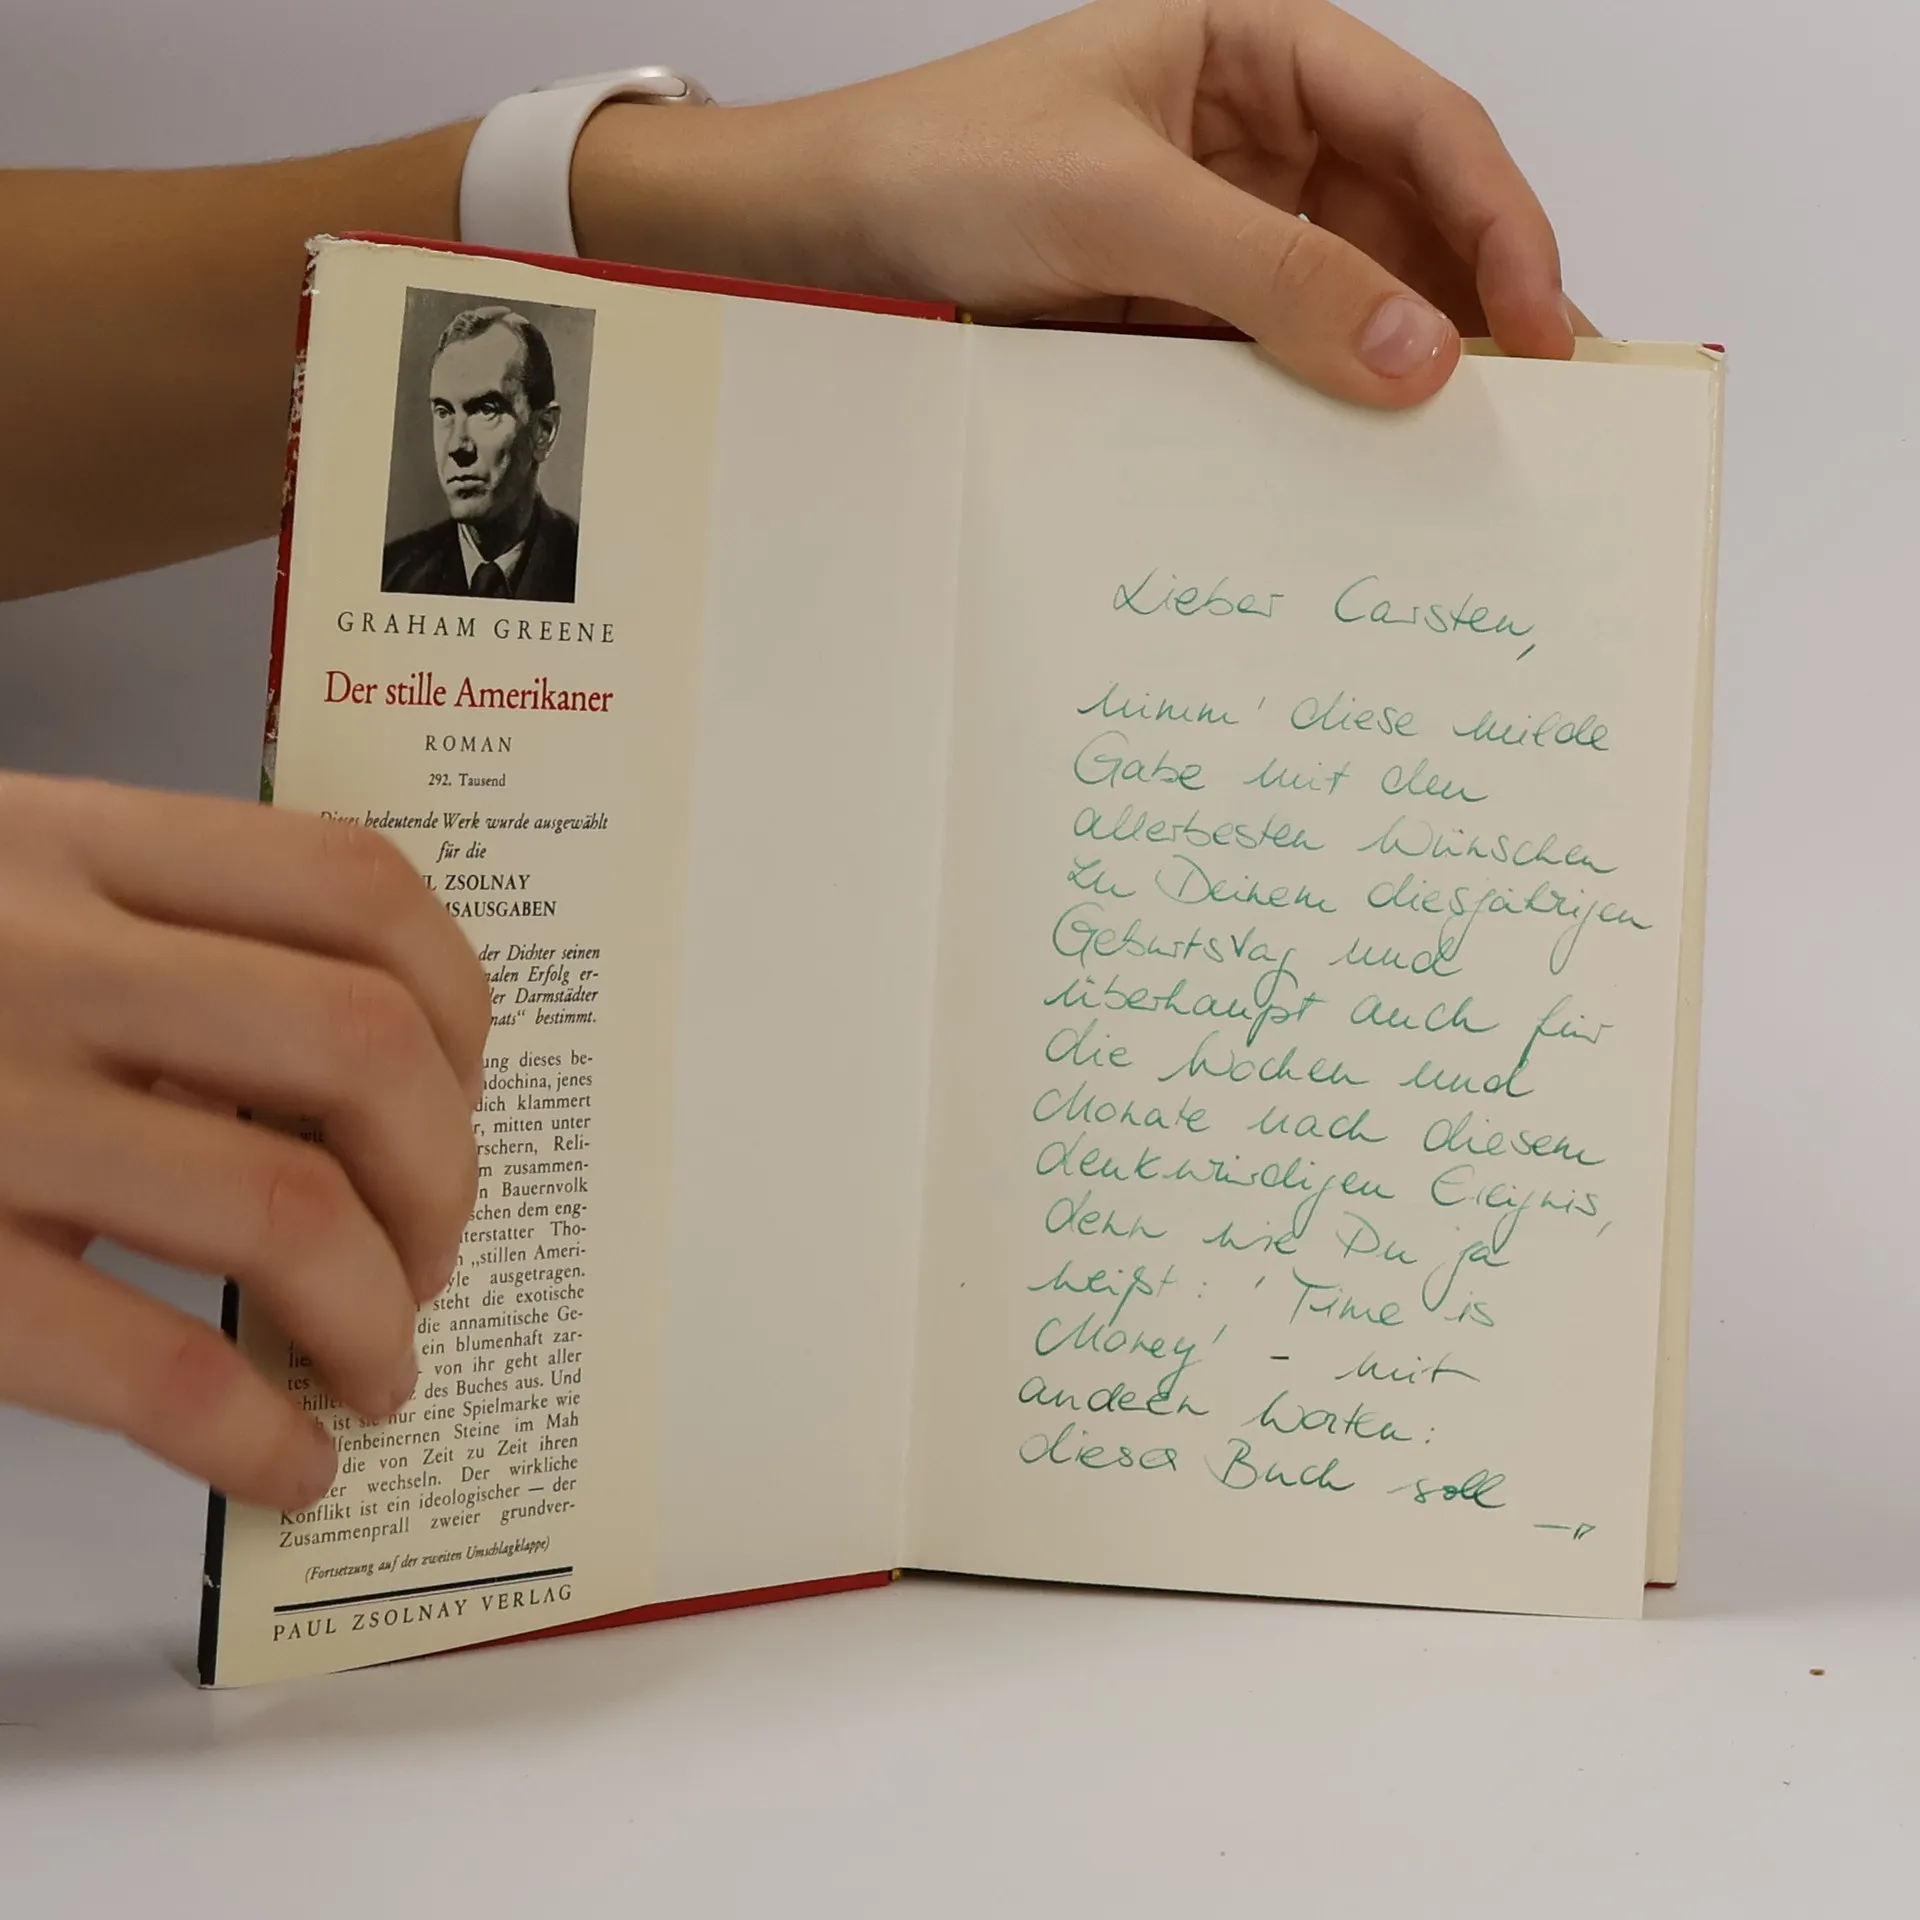 GRAHAM GREENE
Der stille Amerikaner
ROMAN
292. Tausend
Dieses bedeutende Werk wurde ausgewählt
für die
L ZSOLNAY
MSAUSGABEN
der Dichter seinen
nalen Erfolg er-
der Darmstädter
nats“ bestimmt.
ung dieses be-
ndochina, jenes
dich klammert
r, mitten unter
rschern, Reli-
m zusammen-
n Bauernvolk
schen dem eng-
terstatter Tho-
n „stillen Ameri-
yle ausgetragen.
steht die exotische
die annamitische Ge-
ein blumenhaft zar-
tes - von ihr geht aller
schille des Buches aus. Und
h ist sie nur eine Spielmarke wie
lfenbeinernen Steine im Mah
die von Zeit zu Zeit ihren
zer wechseln. Der wirkliche
Konflikt ist ein ideologischer — der
Zusammenprall zweier grundver-
(Fortsetzung auf der zweiten Umschlagklappe)
PAUL ZSOLNAY VERLAG
Lieber Carsten,
nimm' diese milde
Gabe mit den
allerbesten Wünschen
zu Deinem diesjährigen
Geburtstag und
überhaupt auch für
die Wochen und
Monate nach diesem
denkwürdigen Ereignis,
denn wie Du ja
weißt: 'Time is
Money' - mit
anderen Worten:
dieses Buch soll